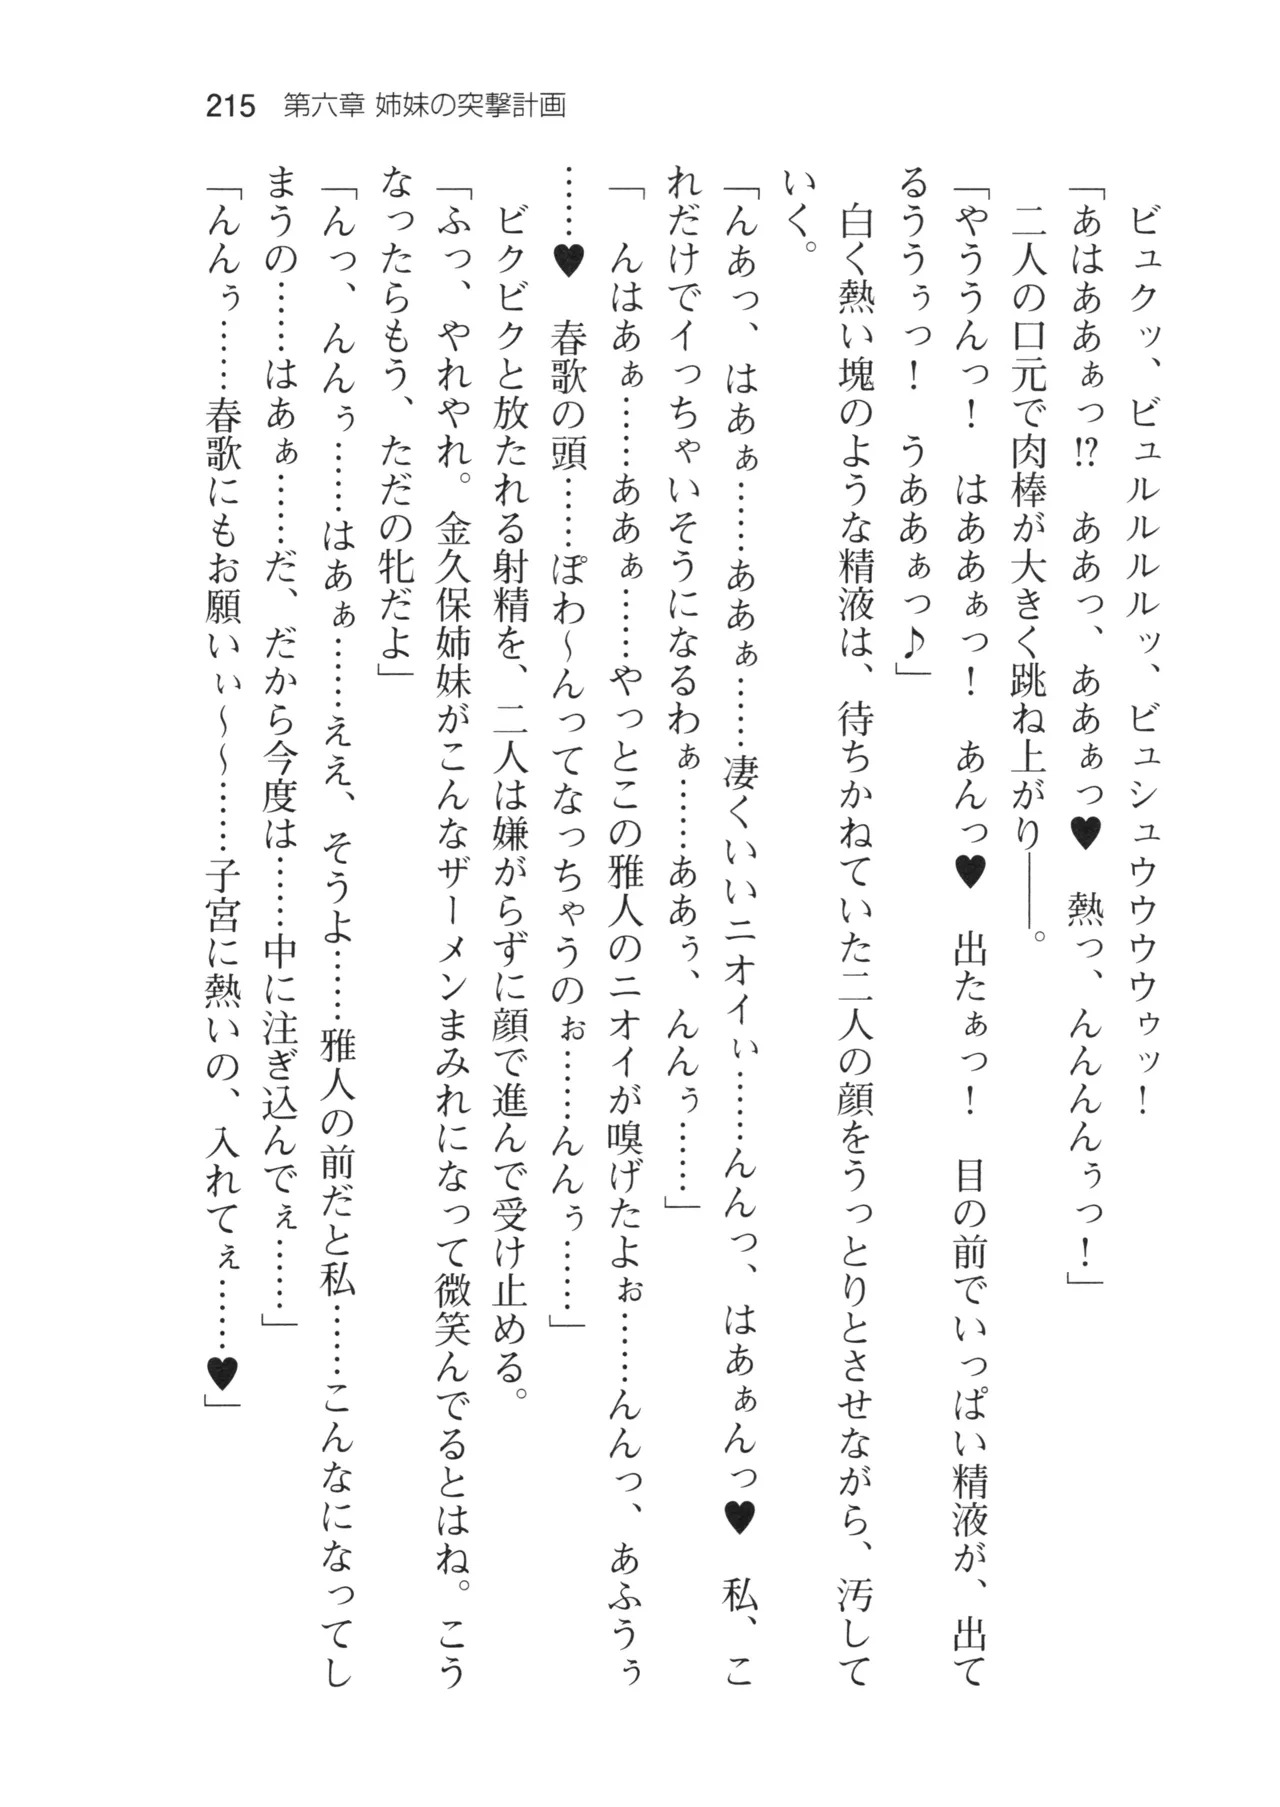 215 第六章 姉妹の突撃計画
　ビュクッ、ビュルルルルッ、ビュシュウウウウゥッ！
「あはああぁっ!?　ああっ、ああぁっ♥　熱っ、んんんんぅっ！」
　二人の口元で肉棒が大きく跳ね上がり――。
「やううんっ！　はああぁっ！　あんっ♥　出たぁっ！　目の前でいっぱい精液が、出て
るううぅっ！　うああぁっ♪」
　白く熱い塊のような精液は、待ちかねていた二人の顔をうっとりとさせながら、汚して
いく。
「んあっ、はあぁ……ああぁ……凄くいいニオイぃ……んんっ、はあぁんっ♥　私、こ
れだけでイっちゃいそうになるわぁ……ああぅ、んんぅ……」
「んはあぁ……ああぁ……やっとこの雅人のニオイが嗅げたよぉ……んんっ、あふうぅ
……♥　春歌の頭……ぽわ～んってなっちゃうのぉ……んんぅ……」
　ビクビクと放たれる射精を、二人は嫌がらずに顔で進んで受け止める。
「ふっ、やれやれ。金久保姉妹がこんなザーメンまみれになって微笑んでるとはね。こう
なったらもう、ただの牝だよ」
「んっ、んんぅ……はあぁ……ええ、そうよ……雅人の前だと私……こんなになってし
まうの……はあぁ……だ、だから今度は……中に注ぎ込んでぇ……」
「んんぅ……春歌にもお願いぃ～～……子宮に熱いの、入れてぇ……♥」